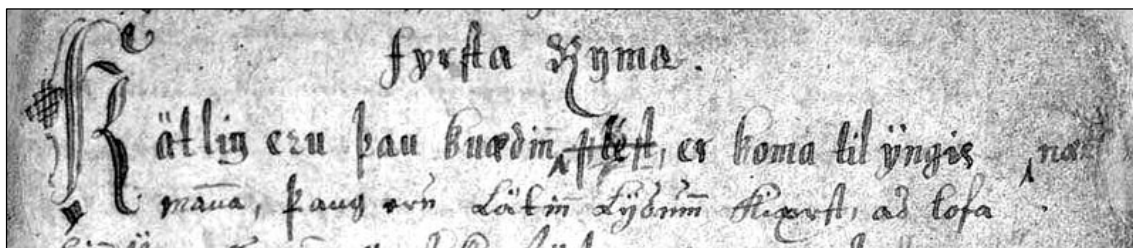 fyrsta Ryma.
Kätlig eru þau kuædin̄, er koma til ÿngis
man̄a, þaug eru Lätin̄ Lÿdum̄ kiærst, ad lofa